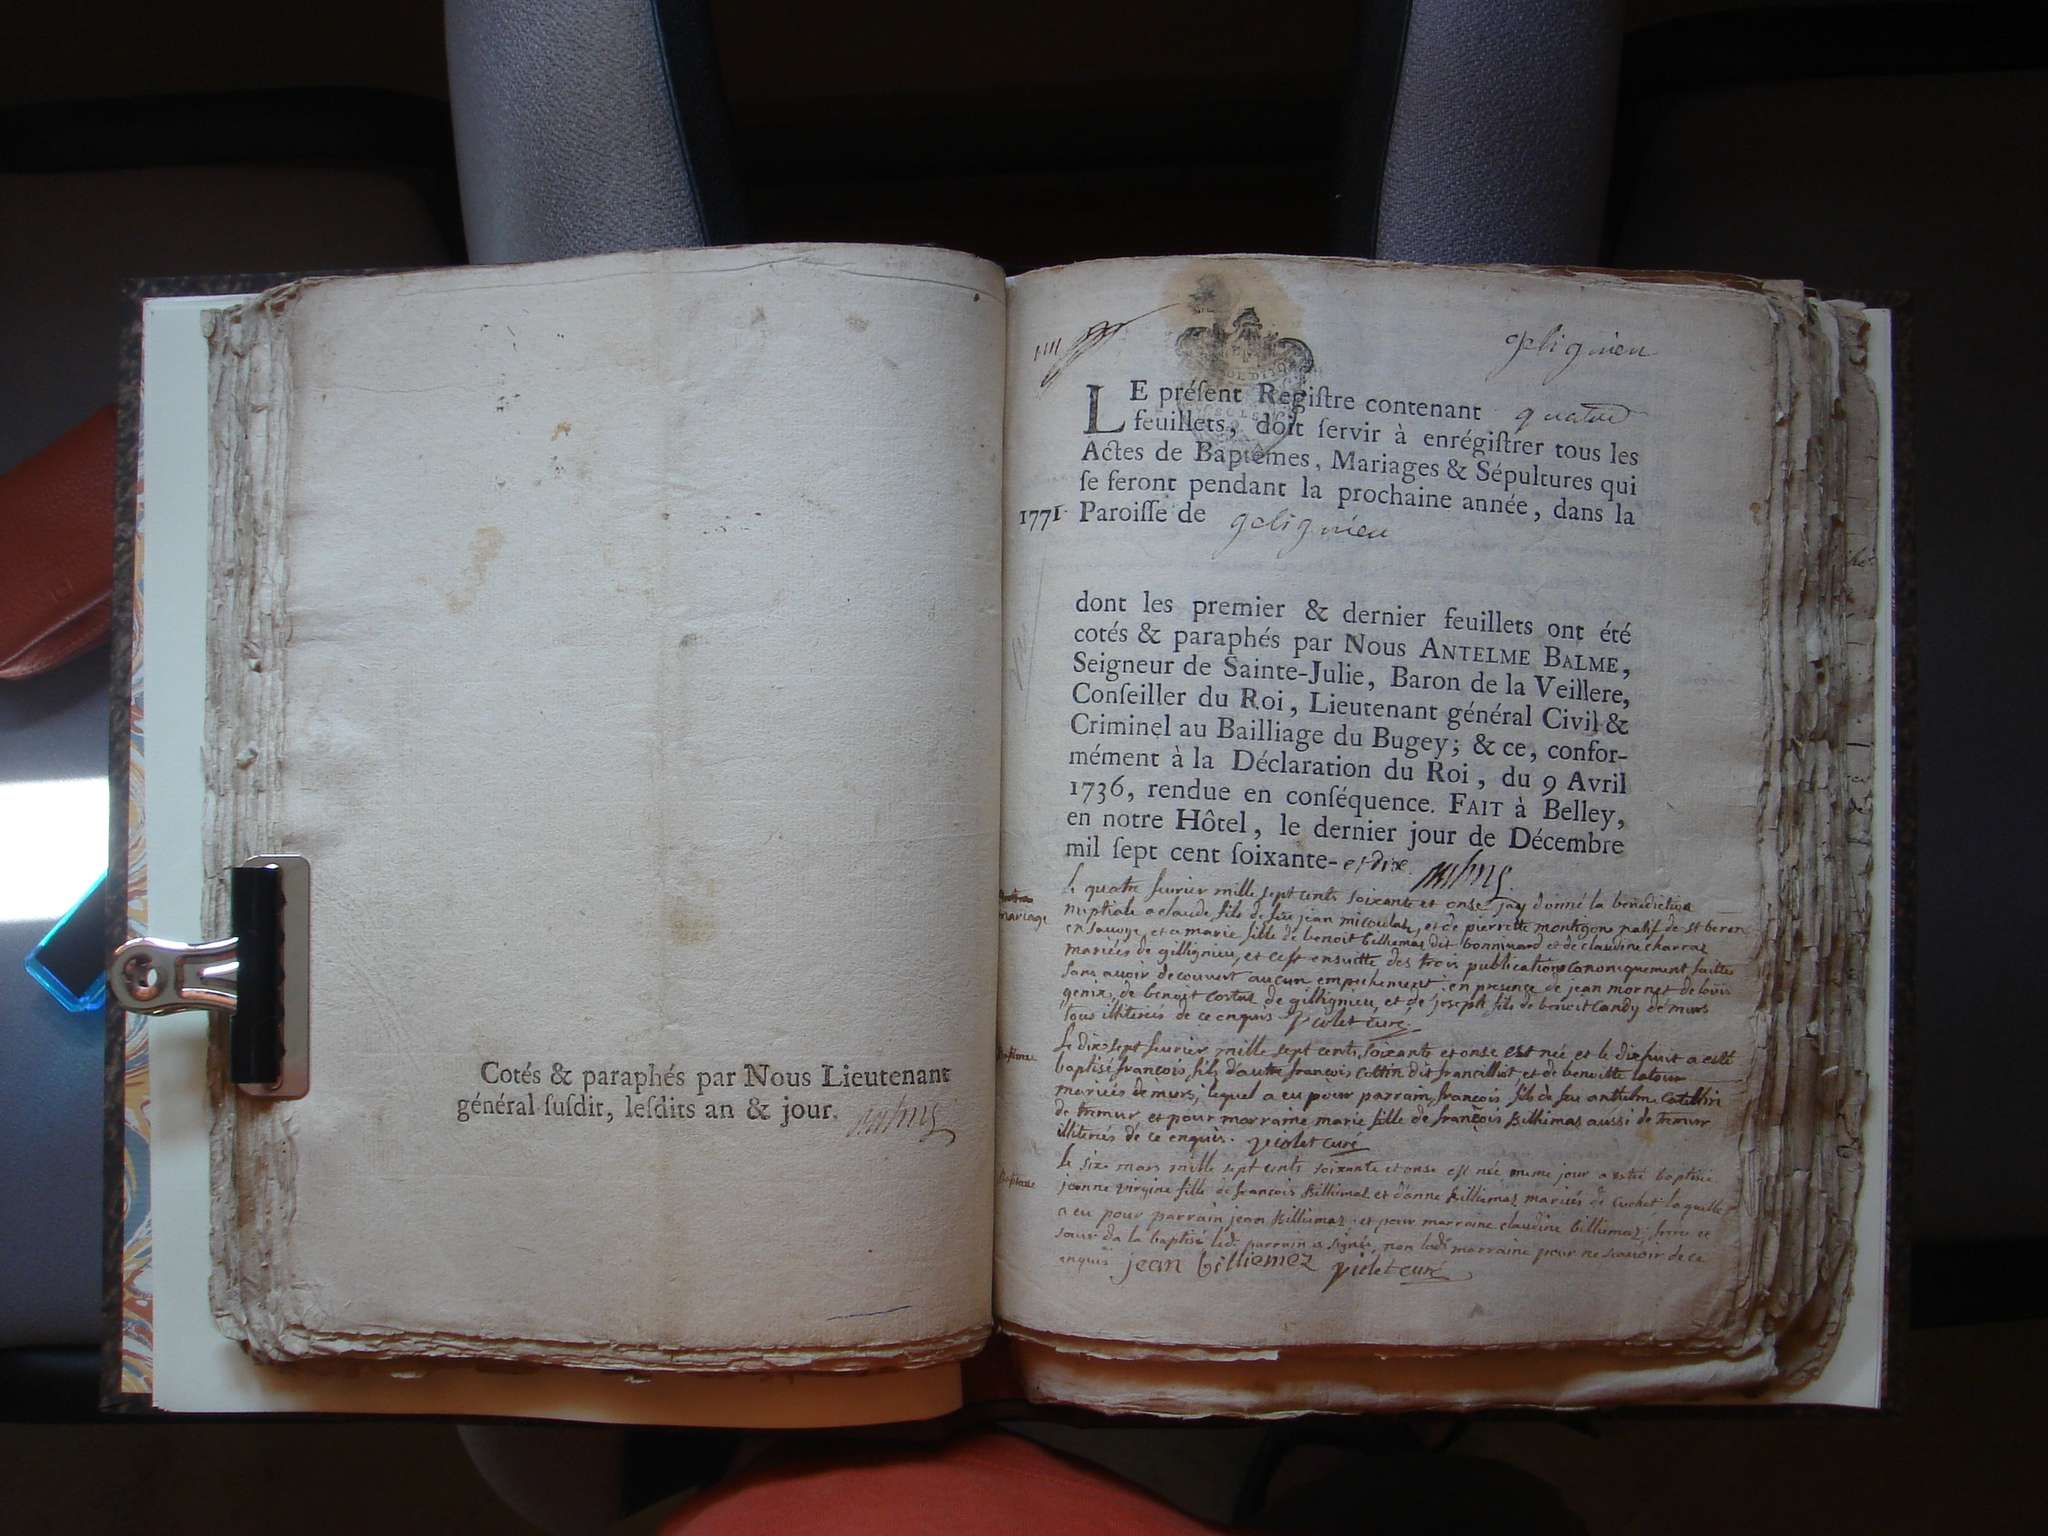 Cotés & paraphés par Nous Lieutenant
général ſuſdit, leſdits an & jour.
gelignieu
LE préſent Regiſtre contenant quatre
feuillets, doit ſervir à enrégiſtrer tous les
Actes de Baptêmes, Mariages & Sépultures qui
ſe feront pendant la prochaine année, dans la
1771. Paroiſſe de gelignieu
dont les premier & dernier feuillets ont été
cotés & paraphés par Nous ANTELME BALME,
Seigneur de Sainte-Julie, Baron de la Veillere,
Conſeiller du Roi, Lieutenant général Civil &
Criminel au Bailliage du Bugey; & ce, confor-
mément à la Déclaration du Roi, du 9 Avril
1736, rendue en conſéquence. FAIT à Belley,
en notre Hôtel, le dernier jour de Décembre
mil ſept cent ſoixante- et dix.
mariage
le quatre feurier mille sept cents soixante et onse jay donné la benediction
nuptiale a claude fils de feu jean micoulat, et de pierrette montigon natif de st beron
en sauoye, et a marie fille de benoit billiemas dit bonninard et de claudine charras
mariées de gillignieu, et cest ensuitte des trois publications canoniquement faittes
sans auoir decouuert aucun empechement. en presence de jean mornet de
genix, de benoit costaz de gillignieu, et de joseph fils de benoit candy de murs
tous illiterés de ce enquis. violet curé
Baptême
le dix sept feurier mille sept cents soixante et onse est née et le dixhuit a esté
baptisé françois fils d'autre françois cottin dit francilliot, et de benoitte latour
mariés de murs, lequel a eu pour parrain françois fils de feu antelme catillin
de tremur et pour marraine marie fille de françois billiemaz aussi de tremur
illiterés de ce enquis. violet curé
Baptême
le six mars mille sept cents soixante et onse est née meme jour a estté baptisée
jeanne virgine fille de françois billiemaz et d'anne billiemaz mariés de cuchet laquelle
a eu pour parrain jean billiemaz et pour marraine claudine billiemaz, frere et
sœur da la baptisé led. parrain a signé, non lade marraine pour ne scauoir de ce
enquis jean billiemez violet curé